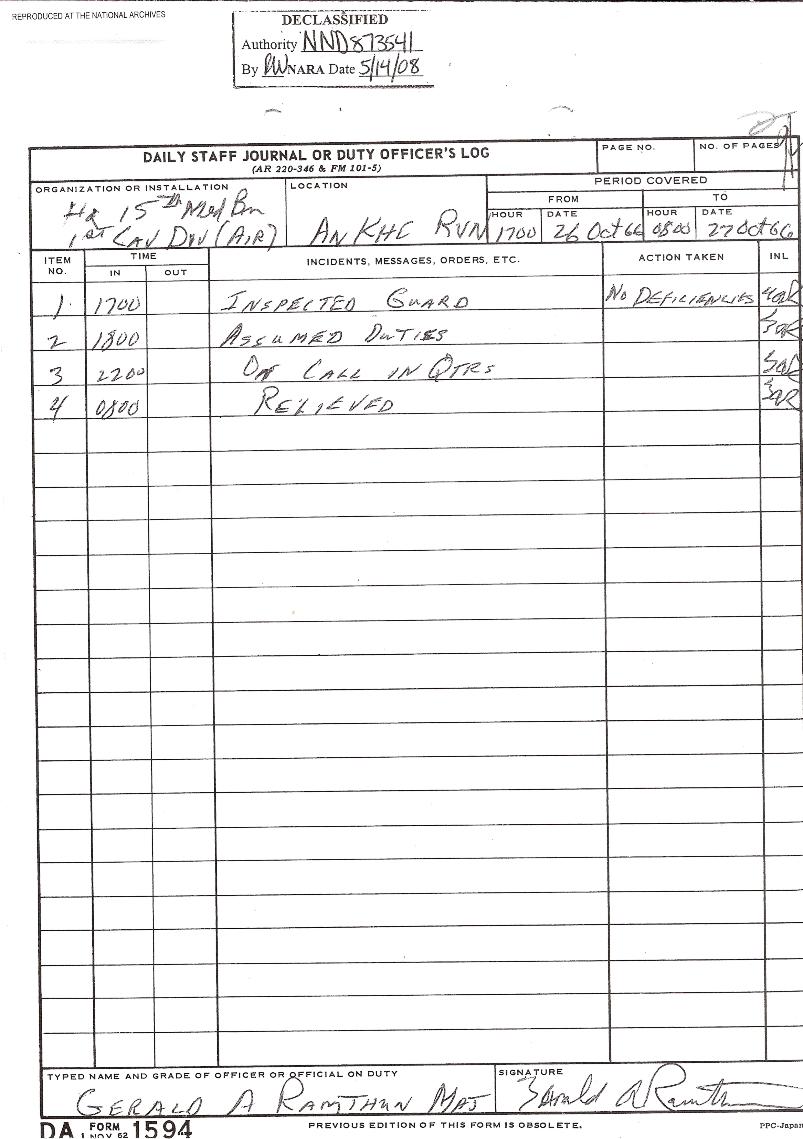 REPRODUCED AT THE NATIONAL ARCHIVES
DECLASSIFIED
Authority NND873541
By NARA Date 5/14/08
DAILY STAFF JOURNAL OR DUTY OFFICER'S LOG
(AR 220-346 & FM 101-5)
PAGE NO.
NO. OF PAGES
ORGANIZATION OR INSTALLATION
Hq 15th Med Bn
1st CAV DIV (AIR)
LOCATION
AN KHE RVN
PERIOD COVERED
FROM
TO
HOUR
DATE
HOUR
DATE
1700
26 Oct 66
0800
27 Oct 66
ITEM NO.
TIME
IN
OUT
INCIDENTS, MESSAGES, ORDERS, ETC.
ACTION TAKEN
INL
1. 1700 INSPECTED GUARD NO DEFICIENCIES
2 1800 ASSUMED DUTIES
3 2200 ON CALL IN QTRS
4 0800 RELIEVED
TYPED NAME AND GRADE OF OFFICER OR OFFICIAL ON DUTY
GERALD A RAMTHUN MAJ
SIGNATURE
Gerald A Ramthun
DA FORM 1 NOV 62 1594
PREVIOUS EDITION OF THIS FORM IS OBSOLETE.
PPC-Japan